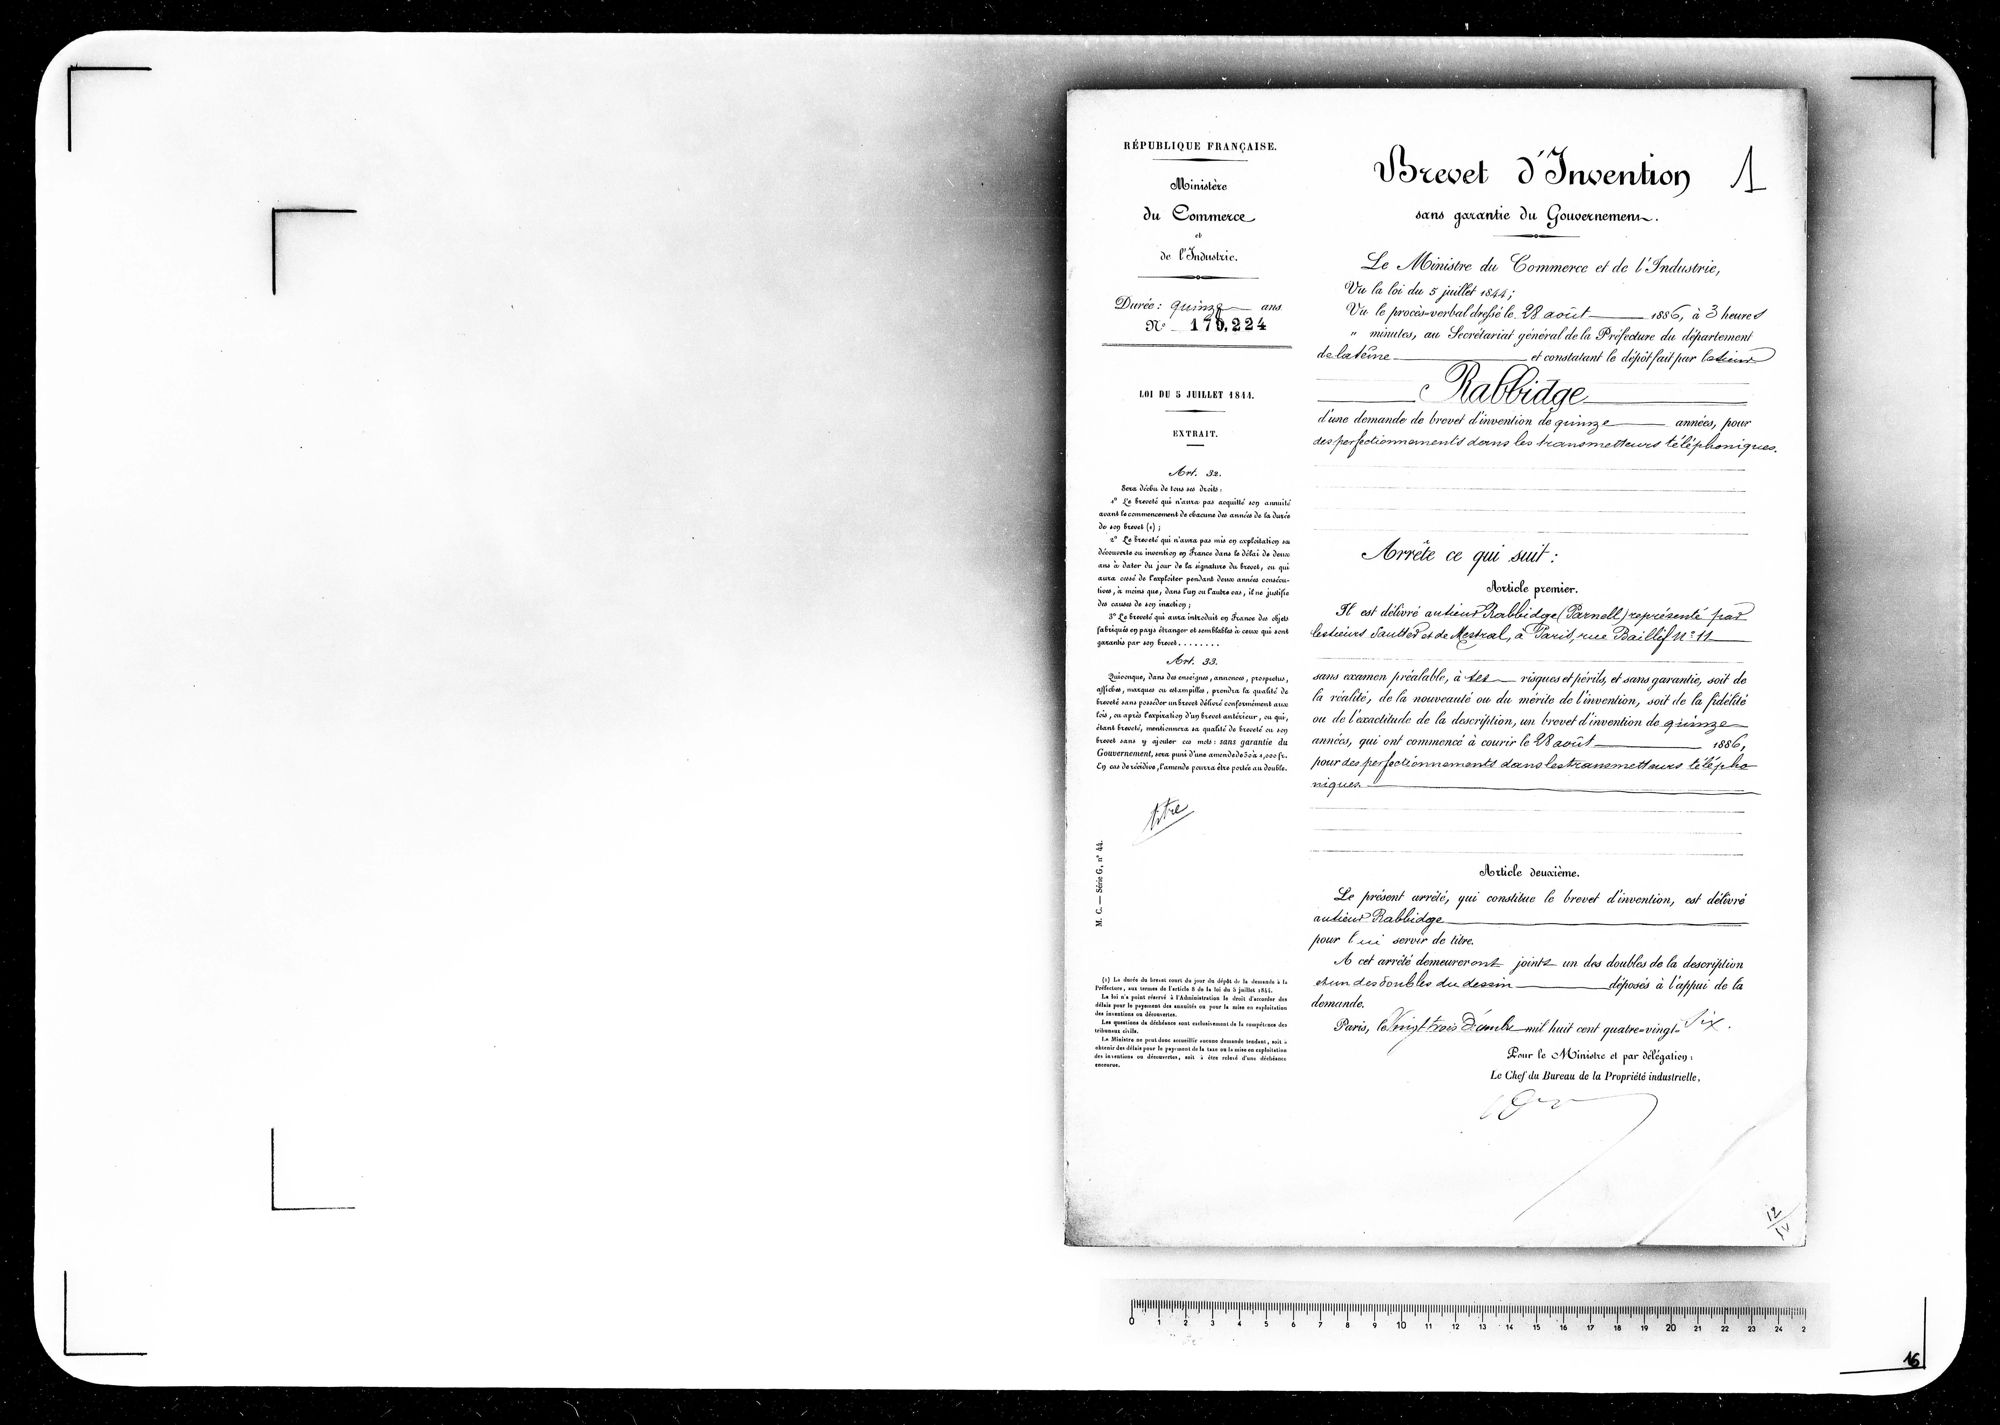 RÉPUBLIQUE FRANÇAISE.
Ministère
du Commerce
et
de l'Industrie.
Durée : quinze ans
N° 170,224
LOI DU 5 JUILLET 1844.
EXTRAIT.
Art. 32.
Sera déchu de tous ses droits :
1° Le breveté qui n'aura pas acquitté son annuité
avant le commencement de chacune des années de la durée
de son brevet (1) ;
2° Le breveté qui n'aura pas mis en exploitation sa
découverte ou invention en France dans le délai de deux
ans à dater du jour de la signature du brevet, ou qui
aura cessé de l'exploiter pendant deux années consécu-
tives, à moins que, dans l'un ou l'autre cas, il ne justifie
des causes de son inaction ;
3° Le breveté qui aura introduit en France des objets
fabriqués en pays étranger et semblables à ceux qui sont
garantis par son brevet........
Art. 33.
Quiconque, dans des enseignes, annonces, prospectus,
affiches, marques ou estampilles, prendra la qualité de
breveté sans posséder un brevet délivré conformément aux
lois, ou après l'expiration d'un brevet antérieur, ou qui,
étant breveté, mentionnera sa qualité de breveté ou son
brevet sans y ajouter ces mots : sans garantie du
Gouvernement, sera puni d'une amende de 50 à 1,000 fr.
En cas de récidive, l'amende pourra être portée au double.
titre
M. C. — Série G, n° 44.
(1) La durée du brevet court du jour du dépôt de la demande à la
Préfecture, aux termes de l'article 8 de la loi du 5 juillet 1844.
La loi n'a point réservé à l'Administration le droit d'accorder des
délais pour le payement des annuités ou pour la mise en exploitation
des inventions ou découvertes.
Les questions de déchéance sont exclusivement de la compétence des
tribunaux civils.
Le Ministre ne peut donc accueillir aucune demande tendant, soit à
obtenir des délais pour le payement de la taxe ou la mise en exploitation
des inventions ou découvertes, soit à être relevé d'une déchéance
encourue.
Brevet d'Invention 1
sans garantie du Gouvernement.
Le Ministre du Commerce et de l'Industrie,
Vu la loi du 5 juillet 1844 ;
Vu le procès-verbal dressé le 28 août 1886, à 3 heures
" minutes, au Secrétariat général de la Préfecture du département
de la Seine et constatant le dépôt fait par le sieur
Rabbidge
d'une demande de brevet d'invention de quinze années, pour
des perfectionnements dans les transmetteurs téléphoniques.
Arrête ce qui suit :
Article premier.
Il est délivré au sieur Rabbidge (Parnell) représenté par
les sieurs Sautter et de Mestral, à Paris, rue Baillif N° 11
sans examen préalable, à ses risques et périls, et sans garantie, soit de
la réalité, de la nouveauté ou du mérite de l'invention, soit de la fidélité
ou de l'exactitude de la description, un brevet d'invention de quinze
années, qui ont commencé à courir le 28 août 1886,
pour des perfectionnements dans les transmetteurs télépho
niques.
Article deuxième.
Le présent arrêté, qui constitue le brevet d'invention, est délivré
au sieur Rabbidge
pour lui servir de titre.
A cet arrêté demeureront joints un des doubles de la description
et un des doubles du dessin déposés à l'appui de la
demande.
Paris, le Vingt trois Décembre mil huit cent quatre-vingt-Six.
Pour le Ministre et par délégation :
Le Chef du Bureau de la Propriété industrielle,
12
0 1 2 3 4 5 6 7 8 9 10 11 12 13 14 15 16 17 18 19 20 21 22 23 24 2
16